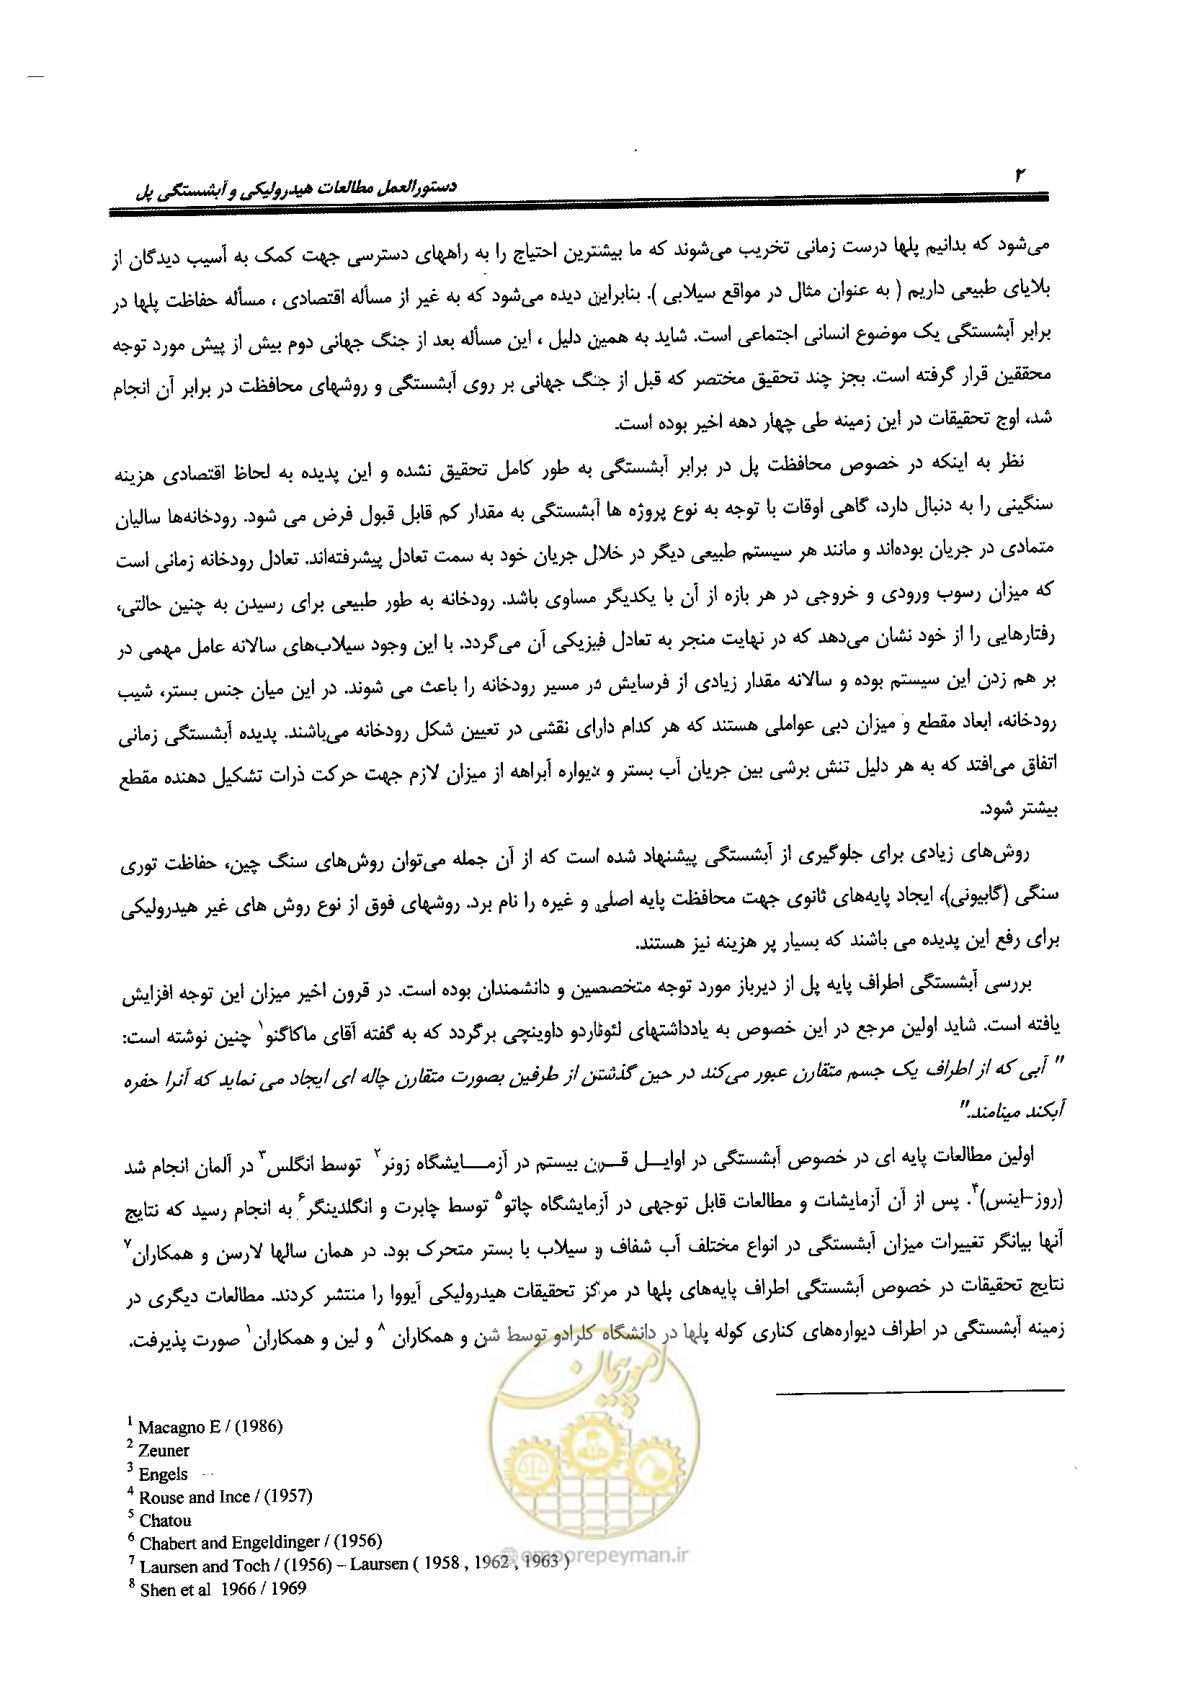 ۲
دستورالعمل مطالعات هیدرولیکی و آبشستگی پل
می‌شود که بدانیم پلها درست زمانی تخریب می‌شوند که ما بیشترین احتیاج را به راههای دسترسی جهت کمک به آسیب دیدگان از
بلایای طبیعی داریم ( به عنوان مثال در مواقع سیلابی ). بنابراین دیده می‌شود که به غیر از مسأله اقتصادی ، مسأله حفاظت پلها در
برابر آبشستگی یک موضوع انسانی اجتماعی است. شاید به همین دلیل ، این مسأله بعد از جنگ جهانی دوم بیش از پیش مورد توجه
محققین قرار گرفته است. بجز چند تحقیق مختصر که قبل از جنگ جهانی بر روی آبشستگی و روشهای محافظت در برابر آن انجام
شد، اوج تحقیقات در این زمینه طی چهار دهه اخیر بوده است.
نظر به اینکه در خصوص محافظت پل در برابر آبشستگی به طور کامل تحقیق نشده و این پدیده به لحاظ اقتصادی هزینه
سنگینی را به دنبال دارد، گاهی اوقات با توجه به نوع پروژه ها آبشستگی به مقدار کم قابل قبول فرض می شود. رودخانه‌ها سالیان
متمادی در جریان بوده‌اند و مانند هر سیستم طبیعی دیگر در خلال جریان خود به سمت تعادل پیشرفته‌اند. تعادل رودخانه زمانی است
که میزان رسوب ورودی و خروجی در هر بازه از آن با یکدیگر مساوی باشد. رودخانه به طور طبیعی برای رسیدن به چنین حالتی،
رفتارهایی را از خود نشان می‌دهد که در نهایت منجر به تعادل فیزیکی آن می‌گردد. با این وجود سیلاب‌های سالانه عامل مهمی در
بر هم زدن این سیستم بوده و سالانه مقدار زیادی از فرسایش در مسیر رودخانه را باعث می شوند. در این میان جنس بستر، شیب
رودخانه، ابعاد مقطع و میزان دبی عواملی هستند که هر کدام دارای نقشی در تعیین شکل رودخانه می‌باشند. پدیده آبشستگی زمانی
اتفاق می‌افتد که به هر دلیل تنش برشی بین جریان آب بستر و دیواره آبراهه از میزان لازم جهت حرکت ذرات تشکیل دهنده مقطع
بیشتر شود.
روش‌های زیادی برای جلوگیری از آبشستگی پیشنهاد شده است که از آن جمله می‌توان روش‌های سنگ چین، حفاظت توری
سنگی (گابیونی)، ایجاد پایه‌های ثانوی جهت محافظت پایه اصلی و غیره را نام برد. روشهای فوق از نوع روش های غیر هیدرولیکی
برای رفع این پدیده می باشند که بسیار پر هزینه نیز هستند.
بررسی آبشستگی اطراف پایه پل از دیرباز مورد توجه متخصصین و دانشمندان بوده است. در قرون اخیر میزان این توجه افزایش
یافته است. شاید اولین مرجع در این خصوص به یادداشتهای لئوناردو داوینچی برگردد که به گفته آقای ماکاگنو۱ چنین نوشته است:
" آبی که از اطراف یک جسم متقارن عبور می‌کند در حین گذشتن از طرفین بصورت متقارن چاله ای ایجاد می نماید که آنرا حفره
آبکند مینامند."
اولین مطالعات پایه ای در خصوص آبشستگی در اوایـل قـرن بیستم در آزمـایشگاه زونر۲ توسط انگلس۳ در آلمان انجام شد
(روز-اینس)۴. پس از آن آزمایشات و مطالعات قابل توجهی در آزمایشگاه چاتو۵ توسط چابرت و انگلدینگر۶ به انجام رسید که نتایج
آنها بیانگر تغییرات میزان آبشستگی در انواع مختلف آب شفاف و سیلاب با بستر متحرک بود. در همان سالها لارسن و همکاران۷
نتایج تحقیقات در خصوص آبشستگی اطراف پایه‌های پلها در مرکز تحقیقات هیدرولیکی آیووا را منتشر کردند. مطالعات دیگری در
زمینه آبشستگی در اطراف دیواره‌های کناری کوله پلها در دانشگاه کلرادو توسط شن و همکاران ۸ و لین و همکاران۱ صورت پذیرفت.
امور پیمان
1 Macagno E / (1986)
2 Zeuner
3 Engels
4 Rouse and Ince / (1957)
5 Chatou
6 Chabert and Engeldinger / (1956)
7 Laursen and Toch / (1956) – Laursen ( 1958 , 1962 , 1963 )
8 Shen et al 1966 / 1969
@omoorepeyman.ir